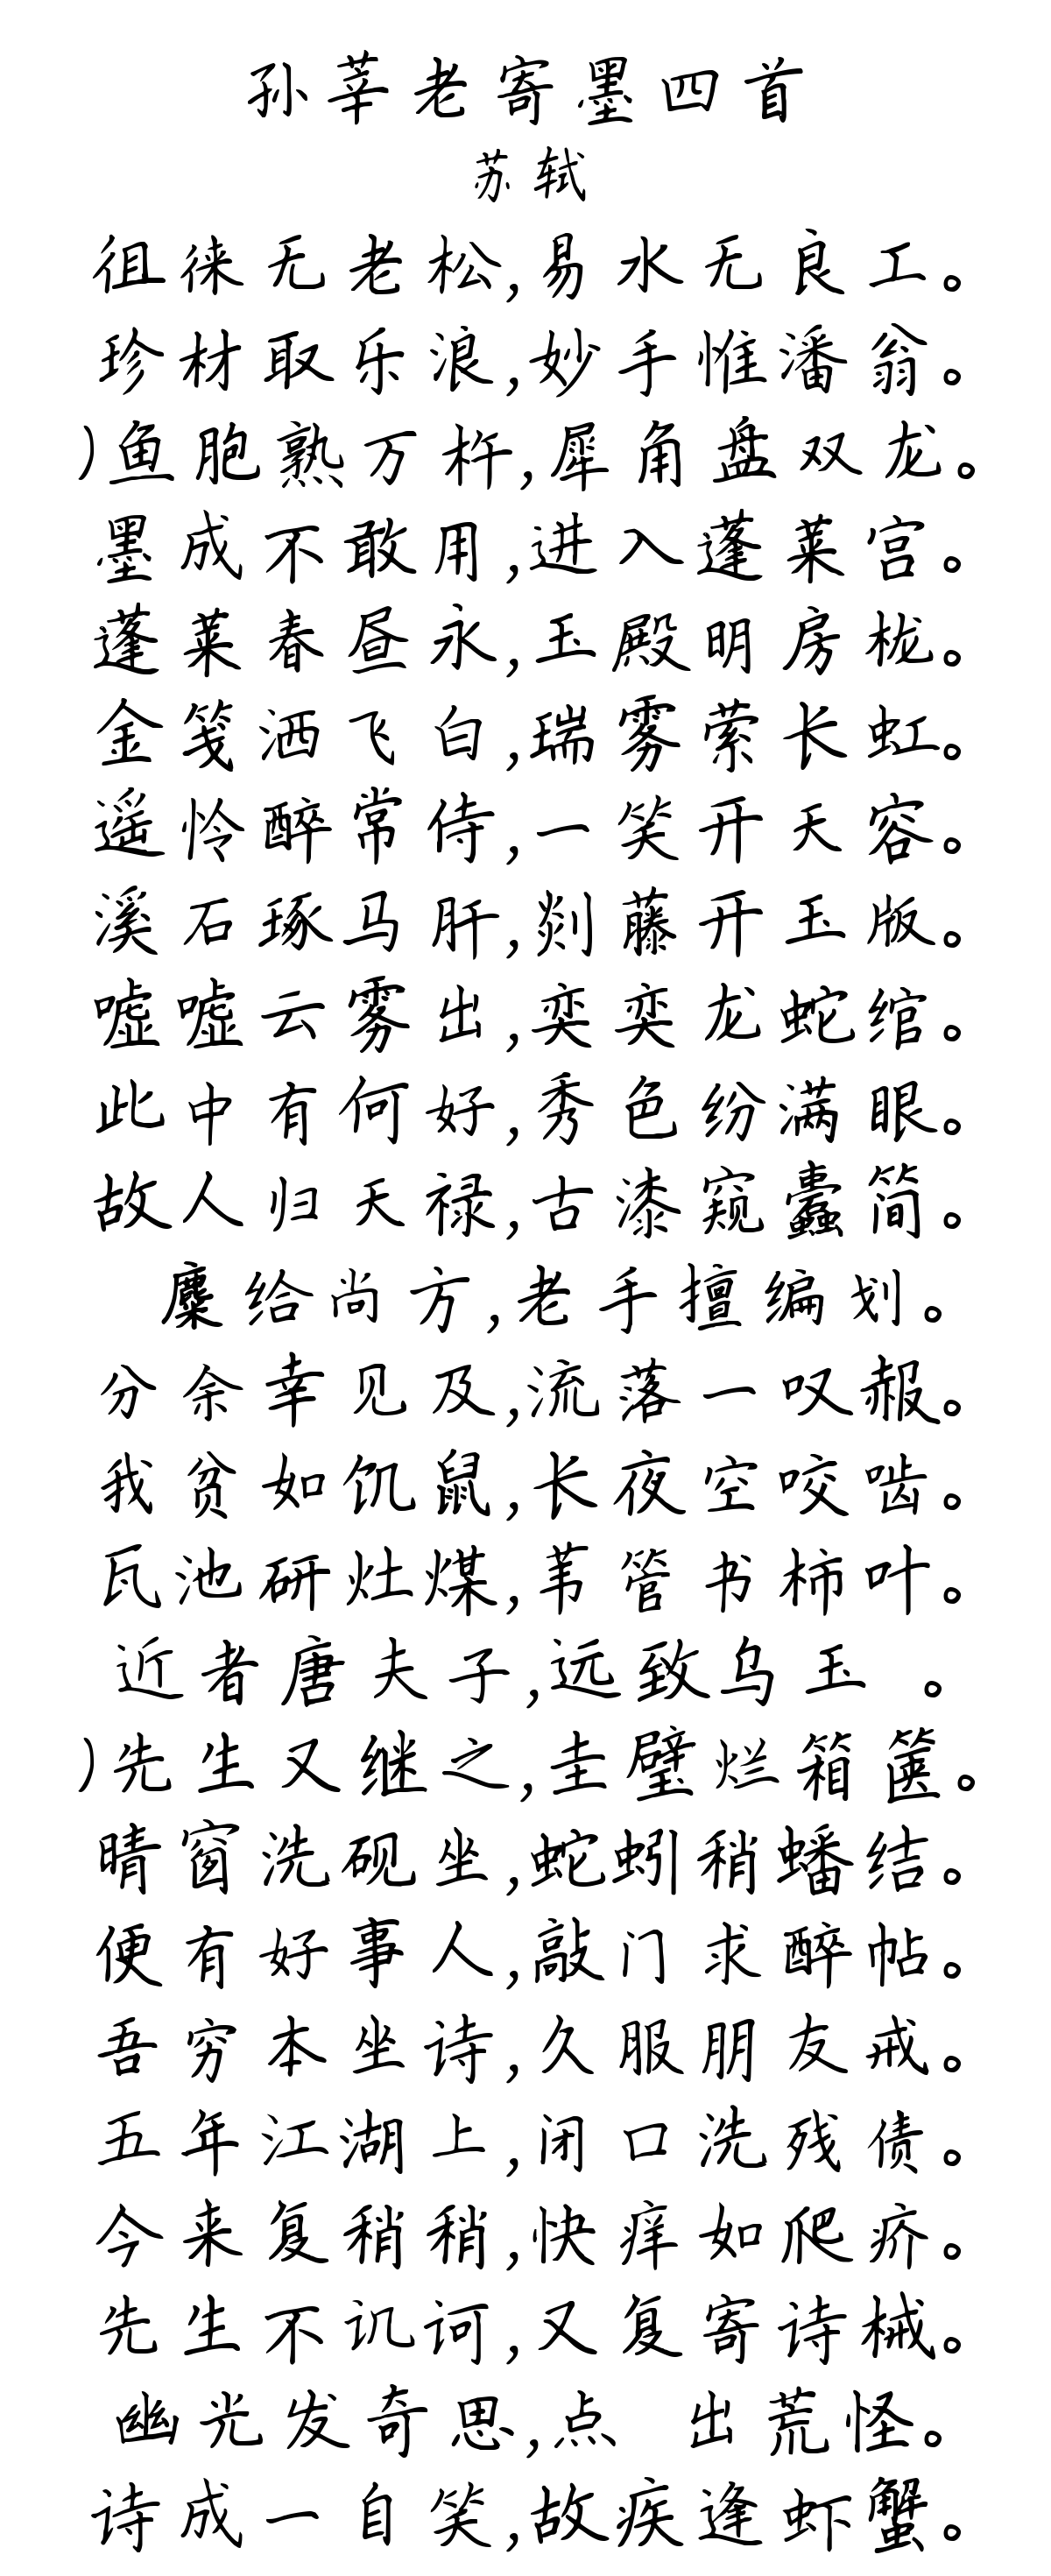 孙莘老寄墨四首
苏轼
徂徕无老松,易水无良工。
珍材取乐浪,妙手惟潘翁。
)鱼胞熟万杵,犀角盘双龙。
墨成不敢用,进入蓬莱宫。
蓬莱春昼永,玉殿明房栊。
金笺洒飞白,瑞雾萦长虹。
遥怜醉常侍,一笑开天容。
溪石琢马肝,剡藤开玉版。
嘘嘘云雾出,奕奕龙蛇绾。
此中有何好,秀色纷满眼。
故人归天禄,古漆窥蠹简。
麇给尚方,老手擅编划。
分余幸见及,流落一叹赧。
我贫如饥鼠,长夜空咬啮。
瓦池研灶煤,苇管书柿叶。
近者唐夫子,远致乌玉 。
)先生又继之,圭璧烂箱箧。
晴窗洗砚坐,蛇蚓稍蟠结。
便有好事人,敲门求醉帖。
吾穷本坐诗,久服朋友戒。
五年江湖上,闭口洗残债。
今来复稍稍,快痒如爬疥。
先生不讥诃,又复寄诗械。
幽光发奇思,点 出荒怪。
诗成一自笑,故疾逢虾蟹。